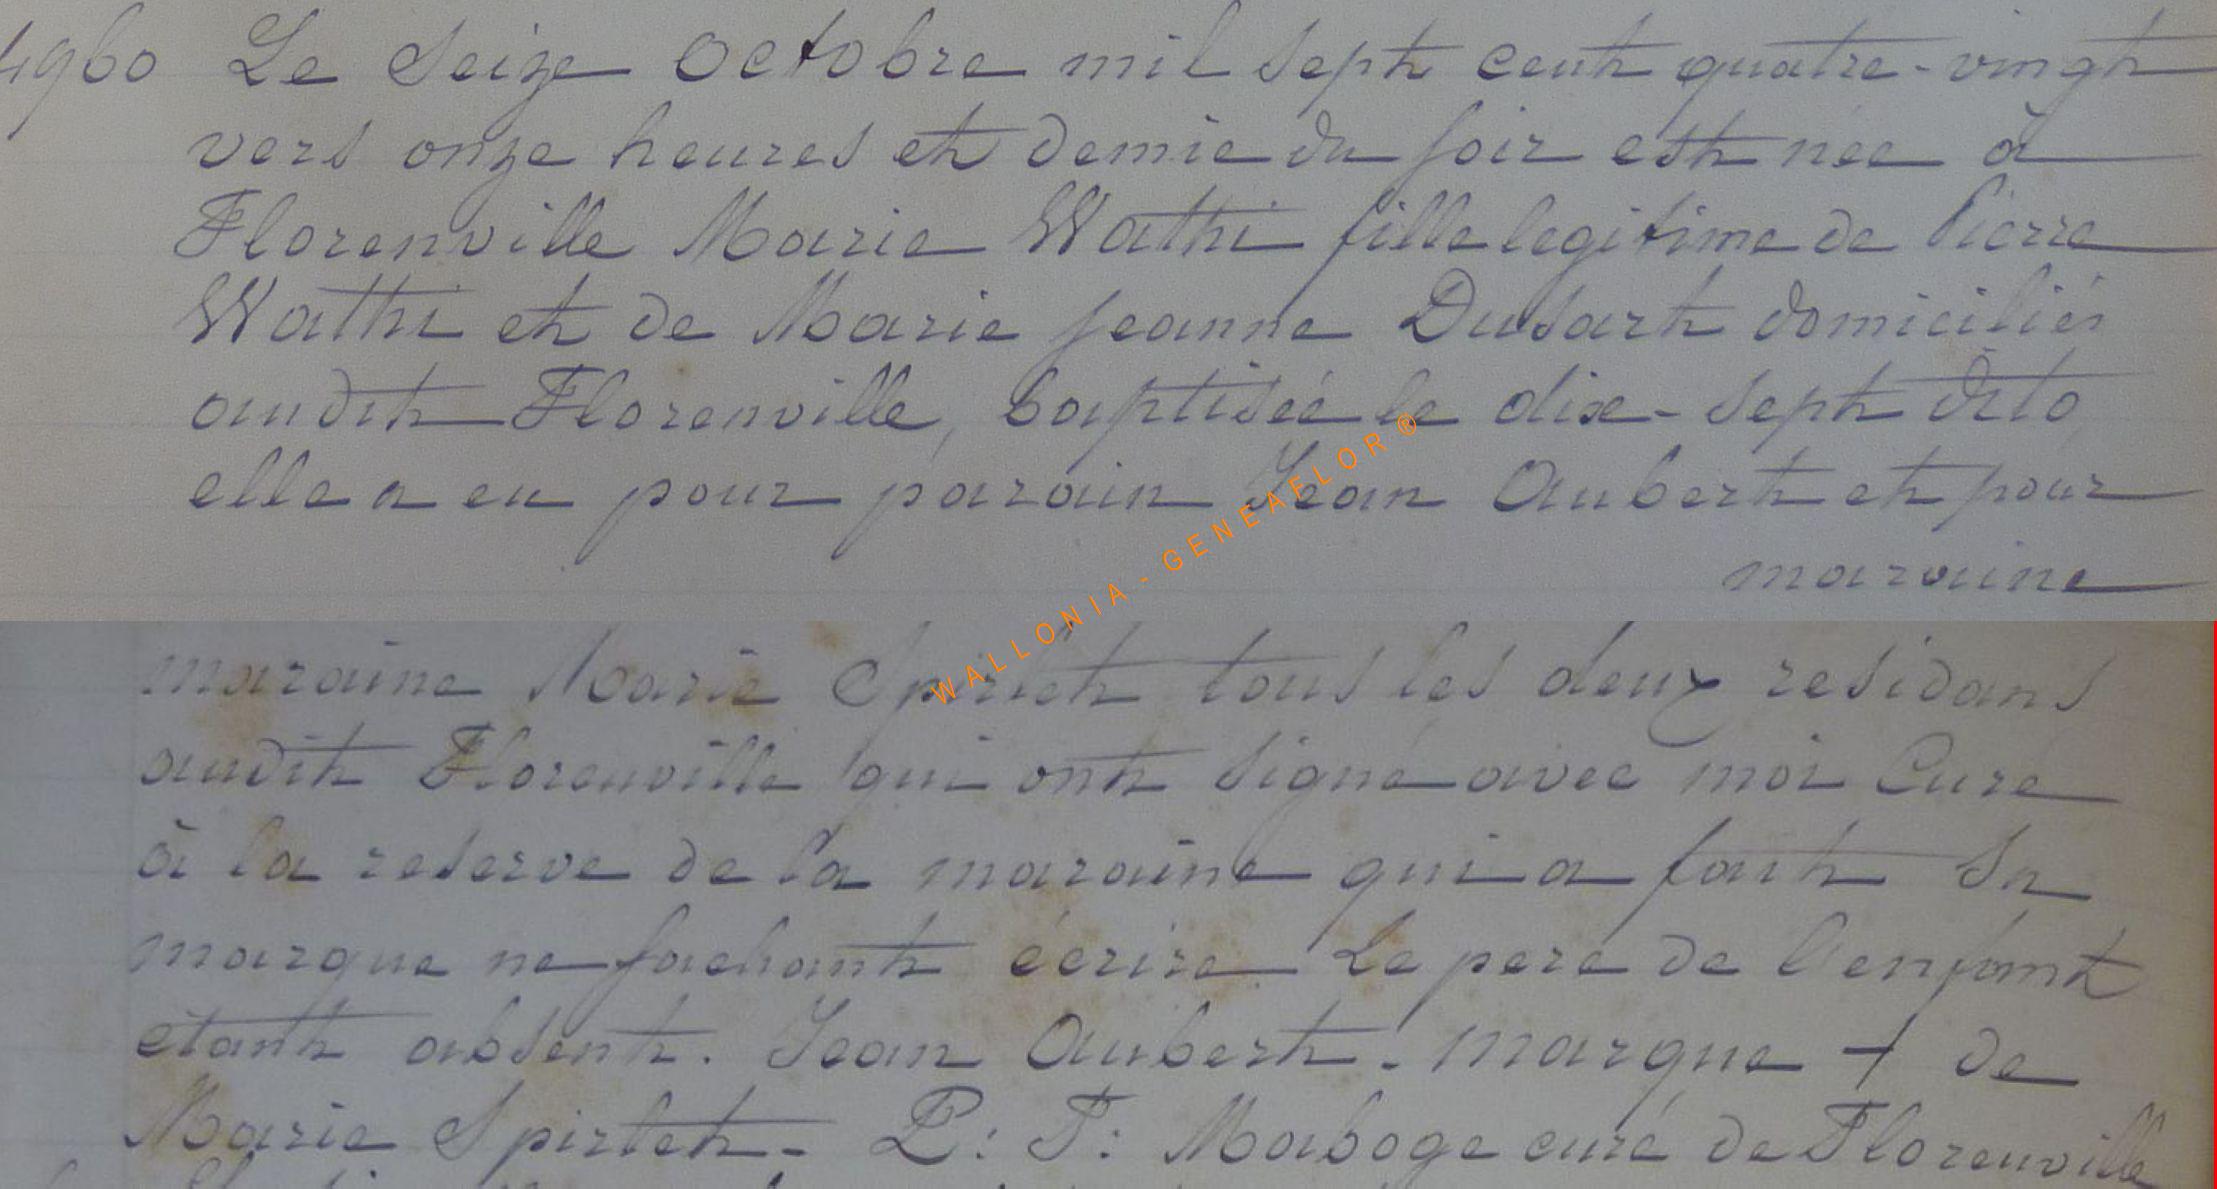 4960 Le Seize Octobre mil sept cent quatre-vingt
vers onze heures et demie du soir est née à
Florenville Marie Wathi fille legitime de Pierre
Wathi et de Marie Jeanne Dusart domiciliés
audit Florenville, baptisée le dix-sept dito
elle a eu pour parain Jean Aubert et pour
maraine
maraine Marie Spirlet tous les deux residans
audit Florenville qui ont signé avec moi Curé
à la reserve de la maraine qui a fait sa
marque ne sachant écrire Le pere de l'enfant
étant absent. Jean Aubert. marque + de
Marie Spirlet - P: T: Maboge curé de Florenville
WALLONIA - GENEAELOR ®